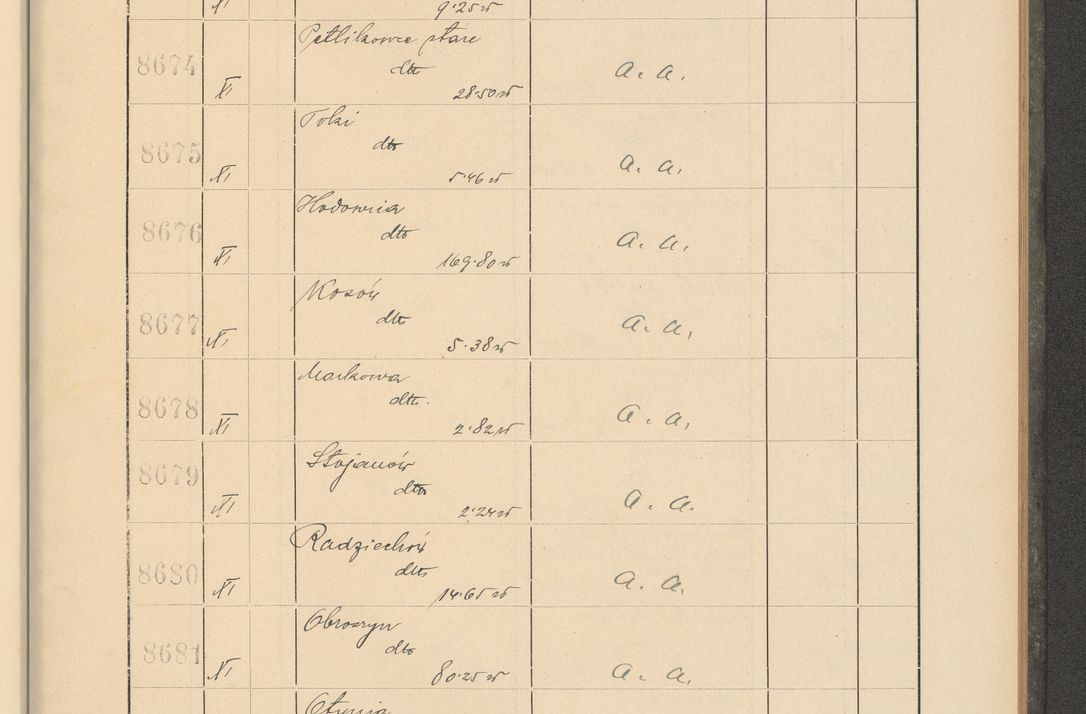 XI 9·25 zł
8674 XI Petlikowce stare
dto
28·50 zł a. a.
8675 XI Toki
dto
5·46 zł a. a.
8676 XI Hodowica
dto
169·80 zł a. a.
8677 XI Kosów
dto
5·38 zł a. a.
8678 XI Markowa
dto.
2·82 zł a. a.
8679 XI Stojanów
dto
2·24 zł a. a.
8680 XI Radziechów
dto
14·65 zł a. a.
8681 XI Obroszyn
dto
80·25 zł a. a.